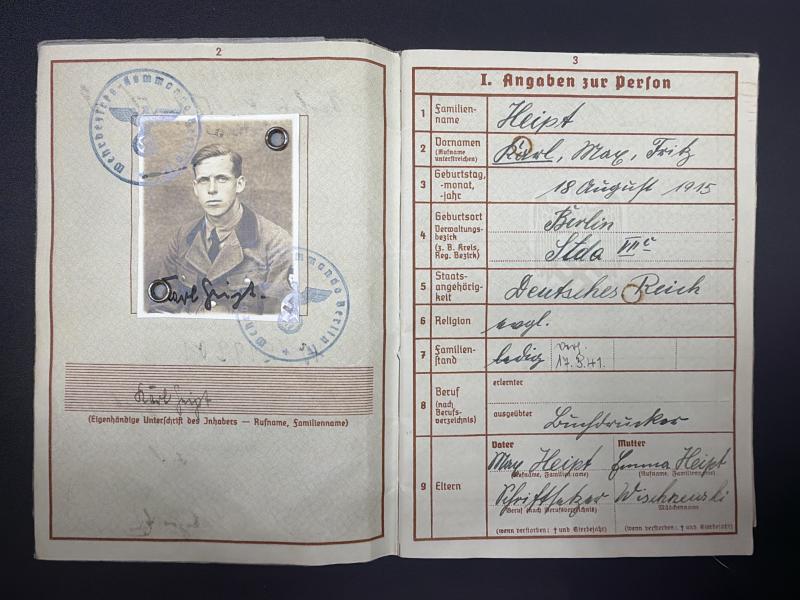 2
Wehrbezirks-Kommando Berlin
Karl Heipt.
Kommando Berlin
Karl Heipt
(Eigenhändige Unterschrift des Inhabers — Rufname, Familienname)
3
I. Angaben zur Person
1 Familien-
name
Heipt
2 Vornamen
(Rufname
unterstreichen)
Karl, Max, Fritz
3 Geburtstag,
-monat,
-jahr
18 August 1915
4 Geburtsort
Verwaltungs-
bezirk
(z. B. Kreis,
Reg. Bezirk)
Berlin
Stda VIIIc
5 Staats-
angehörig-
keit
Deutsches Reich
6 Religion
evgl.
7 Familien-
stand
ledig
8 Beruf
(nach
Berufs-
verzeichnis)
erlernter
ausgeübter
Buchdrucker
9 Eltern
Vater Mutter
Max Heipt Emma Heipt
(Rufname, Familienname) (Rufname, Familienname)
Schriftsetzer Wischnewski
(Beruf (nach Berufsverzeichnis) Mädchenname
(wenn verstorben: † und Sterbejahr) (wenn verstorben: † und Sterbejahr)